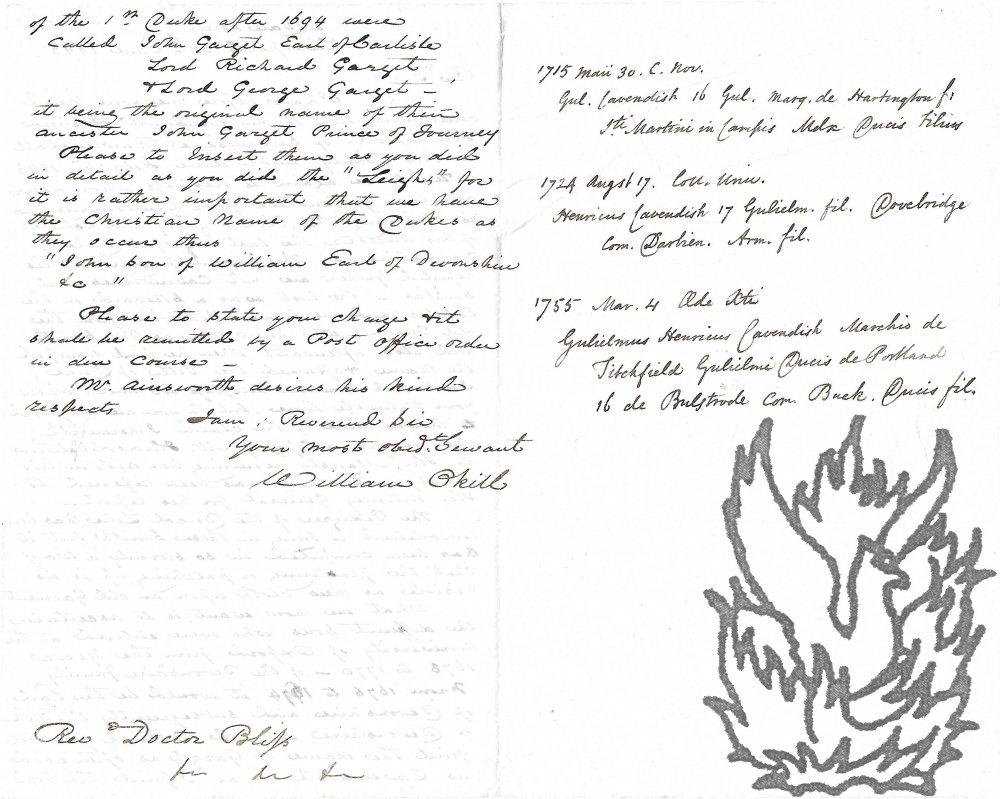 of the 1st Duke after 1694 were
Called John Garget Earl of Carlisle
Lord Richard Garget
& Lord George Garget –
it being the original name of their
ancister John Garget Prince of Tourney
Please to Insert them as you did
in detail as you did the "Leighs" for
it is rather important that we have
the Christian Name of the Dukes as
they occur thus
"John Son of William Earl of Devonshire
&c "
Please to state your charge & it
shall be remitted by a Post Office order
in due Course –
Mr. Ainsworth desires his kind
respects
I am : Reverend Sir
Your most obedt. Servant
William Okill
Revd Doctor Bliss
1715 Maii 30. C. Nov.
Gul. Cavendish 16 Gul. Marq. de Hartington f
Sti Martini in Campis Midx Ducis Filius
1724 Augst 17. Coll. Univ.
Henricus Cavendish 17 Gulielm. fil. Dovebridge
Com. Darbien. Arm. fil.
1755 Mar. 4 Æde Xti
Gulielmus Henricus Cavendish Marchio de
Titchfield Gulielmi Ducis de Portland
16 de Bulstrode Com. Buck. Ducis fil.